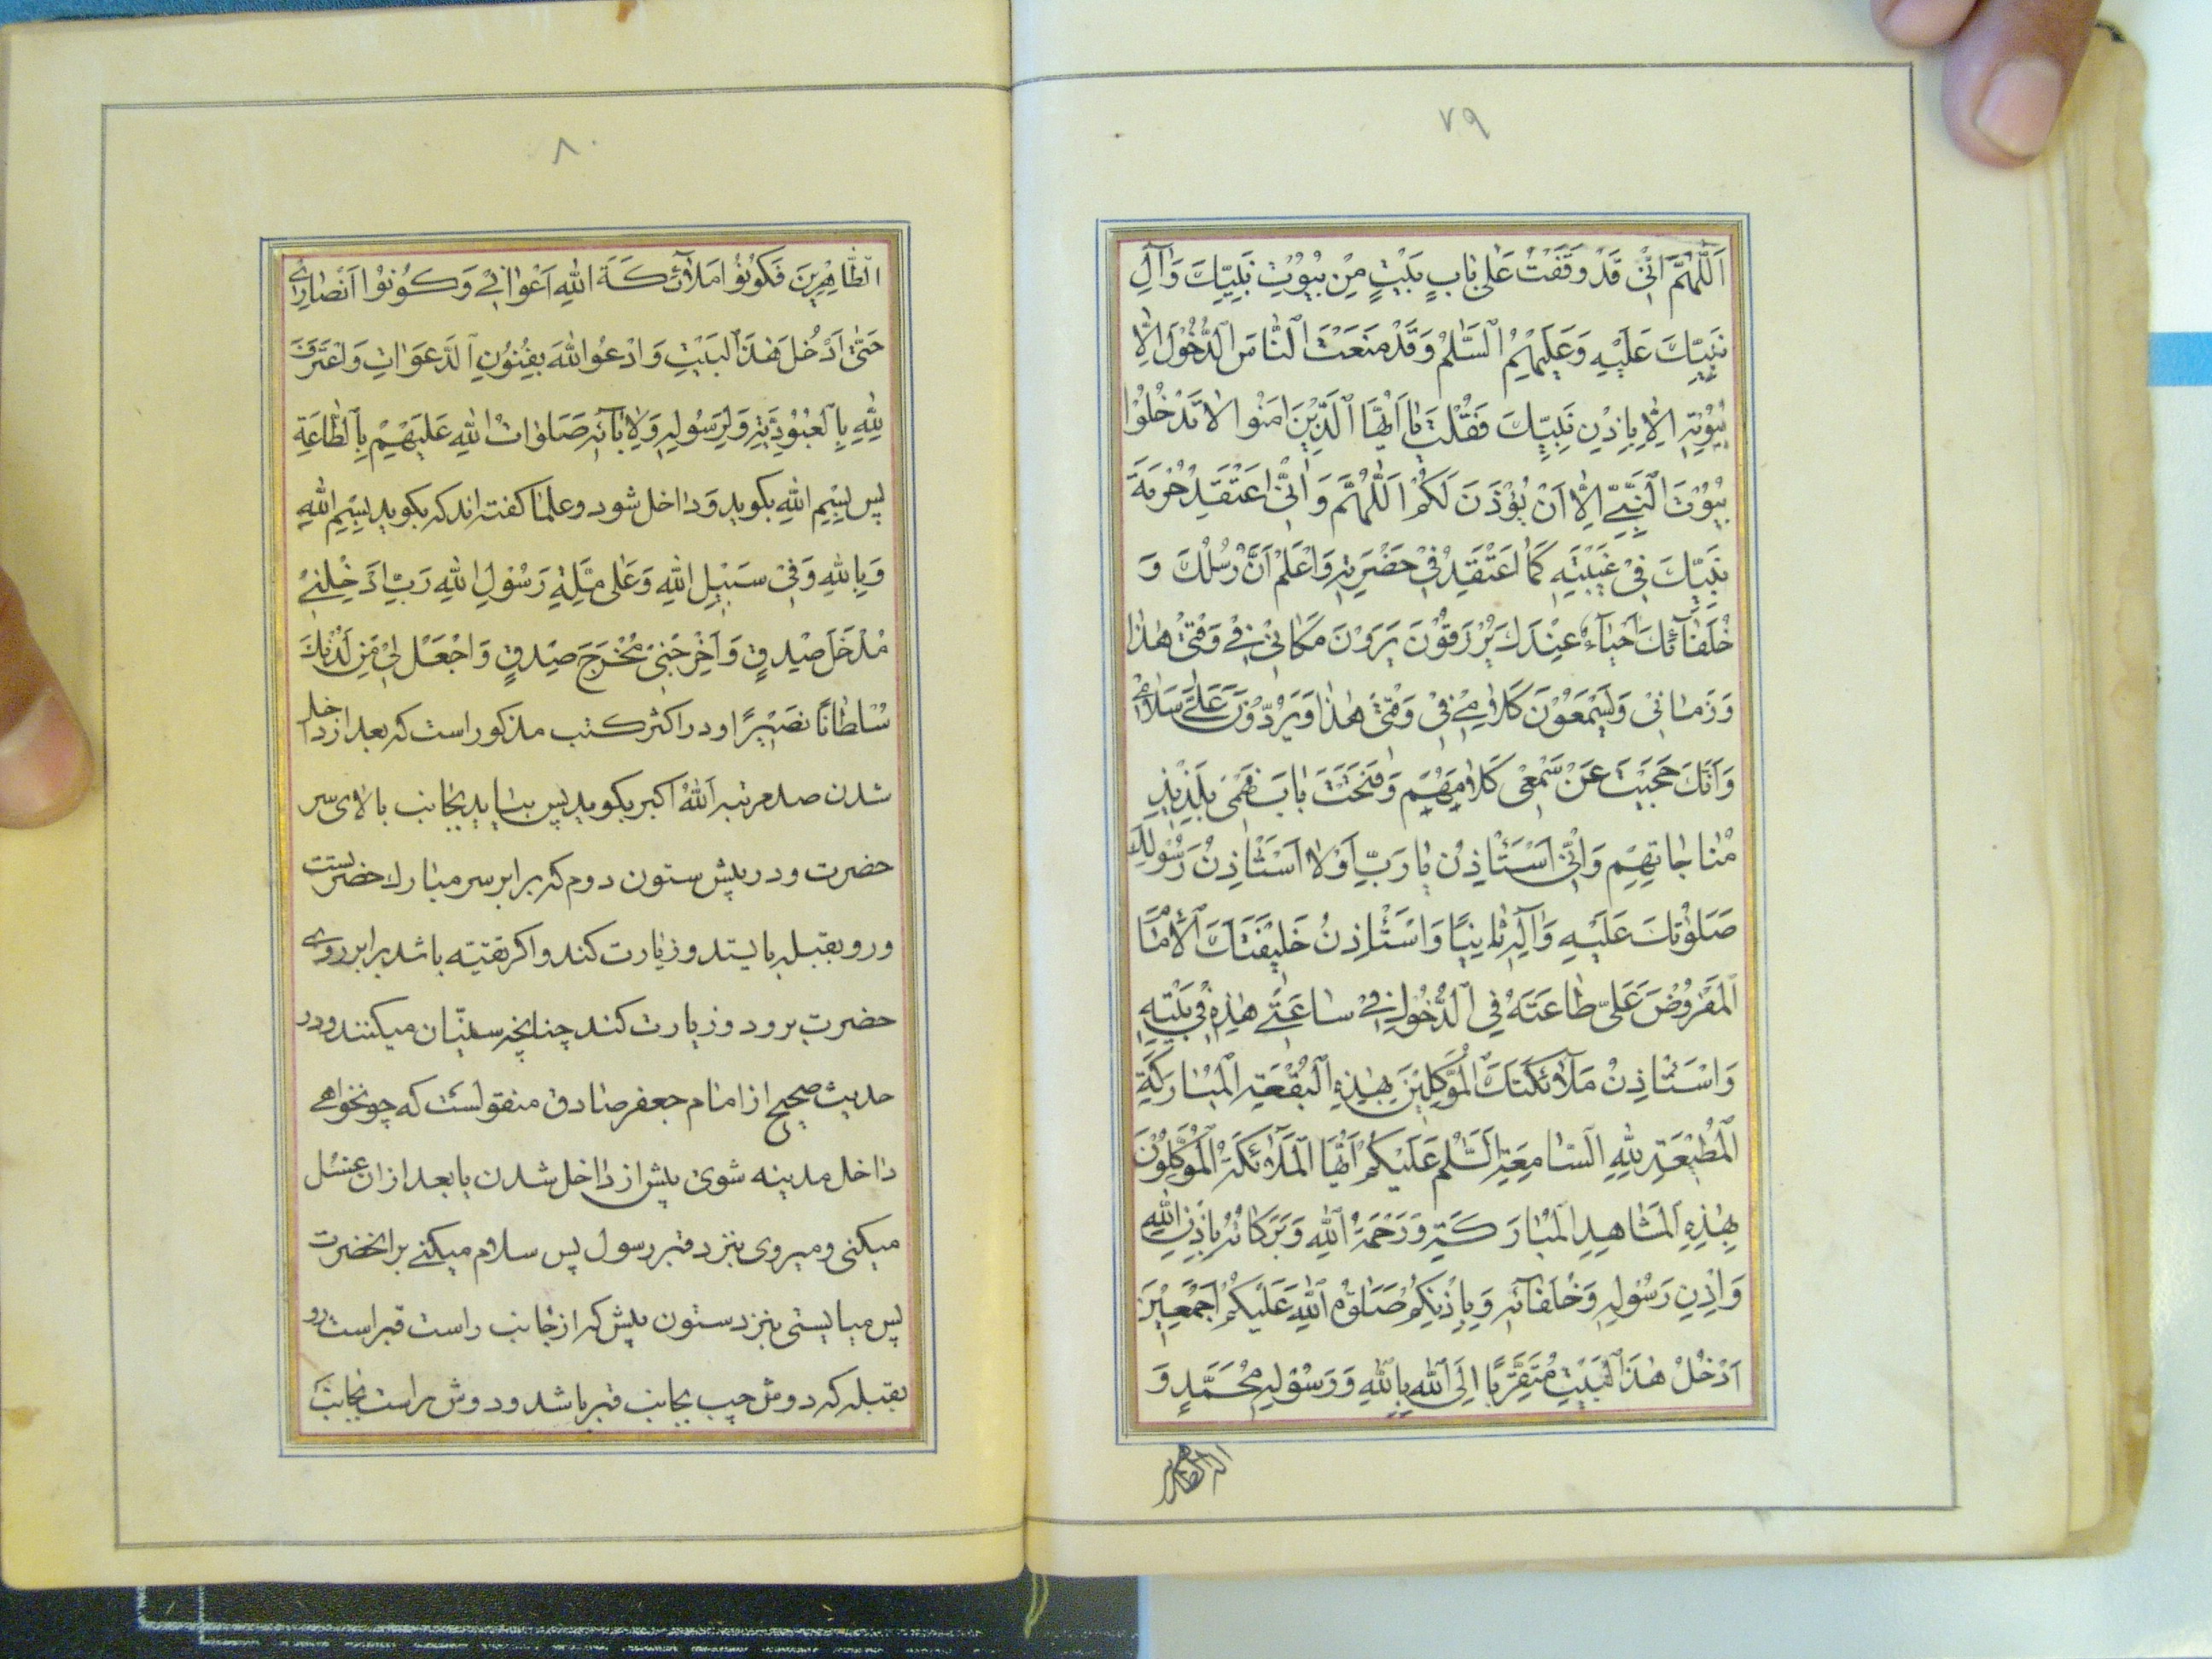 ٧٩
اَللّٰهُمَّ اِنّٖی قَدْ وَقَفْتُ عَلٰی بٰابِ بَیْتٍ مِنْ بُیُوْتِ نَبِیِّكَ وَاٰلِ
نَبِیِّكَ عَلَیْهِ وَعَلَیْهِمُ السَّلٰمُ وَقَدْ مَنَعْتَ النّٰاسَ الدُّخُوْلَ اِلٰی
بُیُوْتِهِ اِلّٰا بِاِذْنِ نَبِیِّكَ فَقُلْتَ یٰا اَیُّهَا الَّذِیْنَ اٰمَنُوا لٰا تَدْخُلُوْا
بُیُوْتَ النَّبِیِّ اِلّٰا اَنْ یُؤْذَنَ لَكُمْ اَللّٰهُمَّ وَاِنّٖی اَعْتَقِدُ حُرْمَةَ
نَبِیِّكَ فِیْ غَیْبَتِهِ كَمٰا اَعْتَقِدُ فِیْ حَضْرَتِهِ وَاَعْلَمُ اَنَّ رُسُلَكَ وَ
خُلَفٰآئَكَ اَحْیٰآءٌ عِنْدَكَ یُرْزَقُوْنَ یَرَوْنَ مَكٰانِیْ فِیْ وَقْتِیْ هٰذٰا
وَزَمٰانِیْ وَیَسْمَعُوْنَ كَلٰامِیْ فِیْ وَقْتِیْ هٰذٰا وَیَرُدُّوْنَ عَلَیَّ سَلٰامِیْ
وَاَنَّكَ حَجَبْتَ عَنْ سَمْعِیْ كَلٰامَهُمْ وَفَتَحْتَ بٰابَ فَهْمِیْ بِلَذِیْذِ
مُنٰاجٰاتِهِمْ وَاِنّٖی اَسْتَأْذِنُ یٰا رَبِّ اَوَّلٰا اَسْتَأْذِنُ رَسُوْلَكَ
صَلَوٰتُكَ عَلَیْهِ وَاٰلِهِ ثٰانِیًا وَاَسْتَأْذِنُ خَلِیْفَتَكَ الْاِمٰامَ
الْمَفْرُوْضَ عَلَیَّ طٰاعَتُهُ فِی الدُّخُوْلِ فِیْ سٰاعَتِیْ هٰذِهِ فِیْ بَیْتِهِ
وَاَسْتَأْذِنُ مَلٰآئِكَتَكَ الْمُوَكَّلِیْنَ بِهٰذِهِ الْبُقْعَةِ الْمُبٰارَكَةِ
الْمُطِیْعَةِ لِلّٰهِ السّٰامِعَةِ اَلسَّلٰمُ عَلَیْكُمْ اَیُّهَا الْمَلٰآئِكَةُ الْمُوَكَّلُوْنَ
بِهٰذِهِ الْمَشٰاهِدِ الْمُبٰارَكَةِ وَرَحْمَةُ اللّٰهِ وَبَرَكٰاتُهُ بِاِذْنِ اللّٰهِ
وَاِذْنِ رَسُوْلِهِ وَخُلَفٰآئِهِ وَبِاِذْنِكُمْ صَلَوٰةُ اللّٰهِ عَلَیْكُمْ اَجْمَعِیْنَ
اَدْخُلُ هٰذَا الْبَیْتَ مُتَقَرِّبًا اِلَی اللّٰهِ بِاللّٰهِ وَرَسُوْلِهِ مُحَمَّدٍ وَ
٨٠
الطّٰاهِرِیْنَ فَكُوْنُوْا مَلٰآئِكَةَ اللّٰهِ اَعْوٰانِیْ وَكُوْنُوْا اَنْصٰارِیْ
حَتّٰی اَدْخُلَ هٰذَا الْبَیْتَ وَاَدْعُوا اللّٰهَ بِفُنُوْنِ الدَّعَوٰاتِ وَاَعْتَرِفَ
لِلّٰهِ بِالْعُبُوْدِیَّةِ وَلِرَسُوْلِهِ وَلِاٰبٰآئِهِ صَلَوٰاتُ اللّٰهِ عَلَیْهِمْ بِالطّٰاعَةِ
پس بِسْمِ اللّٰهِ بکوید و داخل شود و علما کفته اند که بکوید بِسْمِ اللّٰهِ
وَبِاللّٰهِ وَفِیْ سَبِیْلِ اللّٰهِ وَعَلٰی مِلَّةِ رَسُوْلِ اللّٰهِ رَبِّ اَدْخِلْنِیْ
مُدْخَلَ صِدْقٍ وَاَخْرِجْنِیْ مُخْرَجَ صِدْقٍ وَاجْعَلْ لِیْ مِنْ لَدُنْكَ
سُلْطٰانًا نَصِیْرًا و در اکثر کتب مذکور است که بعد از داخل
شدن صد مرتبه اَللّٰهُ اکبر بکوید پس بیاید بجانب بالای سر
حضرت و در پیش ستون دوم که برابر سر مبارك حضرتست
و رو بقبله بایستد و زیارت کند و اکر تقیّه باشد برابر روی
حضرت برود و زیارت کند چنانچه سنّیان میکنند و در
حدیث صحیح از امام جعفر صادق منقولست که چون خواهی
داخل مدینه شوی پیش از داخل شدن یا بعد از ان غسل
میکنی و میروی بنزد قبر رسول پس سلام میکنی بر انحضرت
پس میایستی بنزد ستون پیش که از جانب راست قبر است رو
بقبله که دوش چپ بجانب قبر باشد و دوش راست بجانب